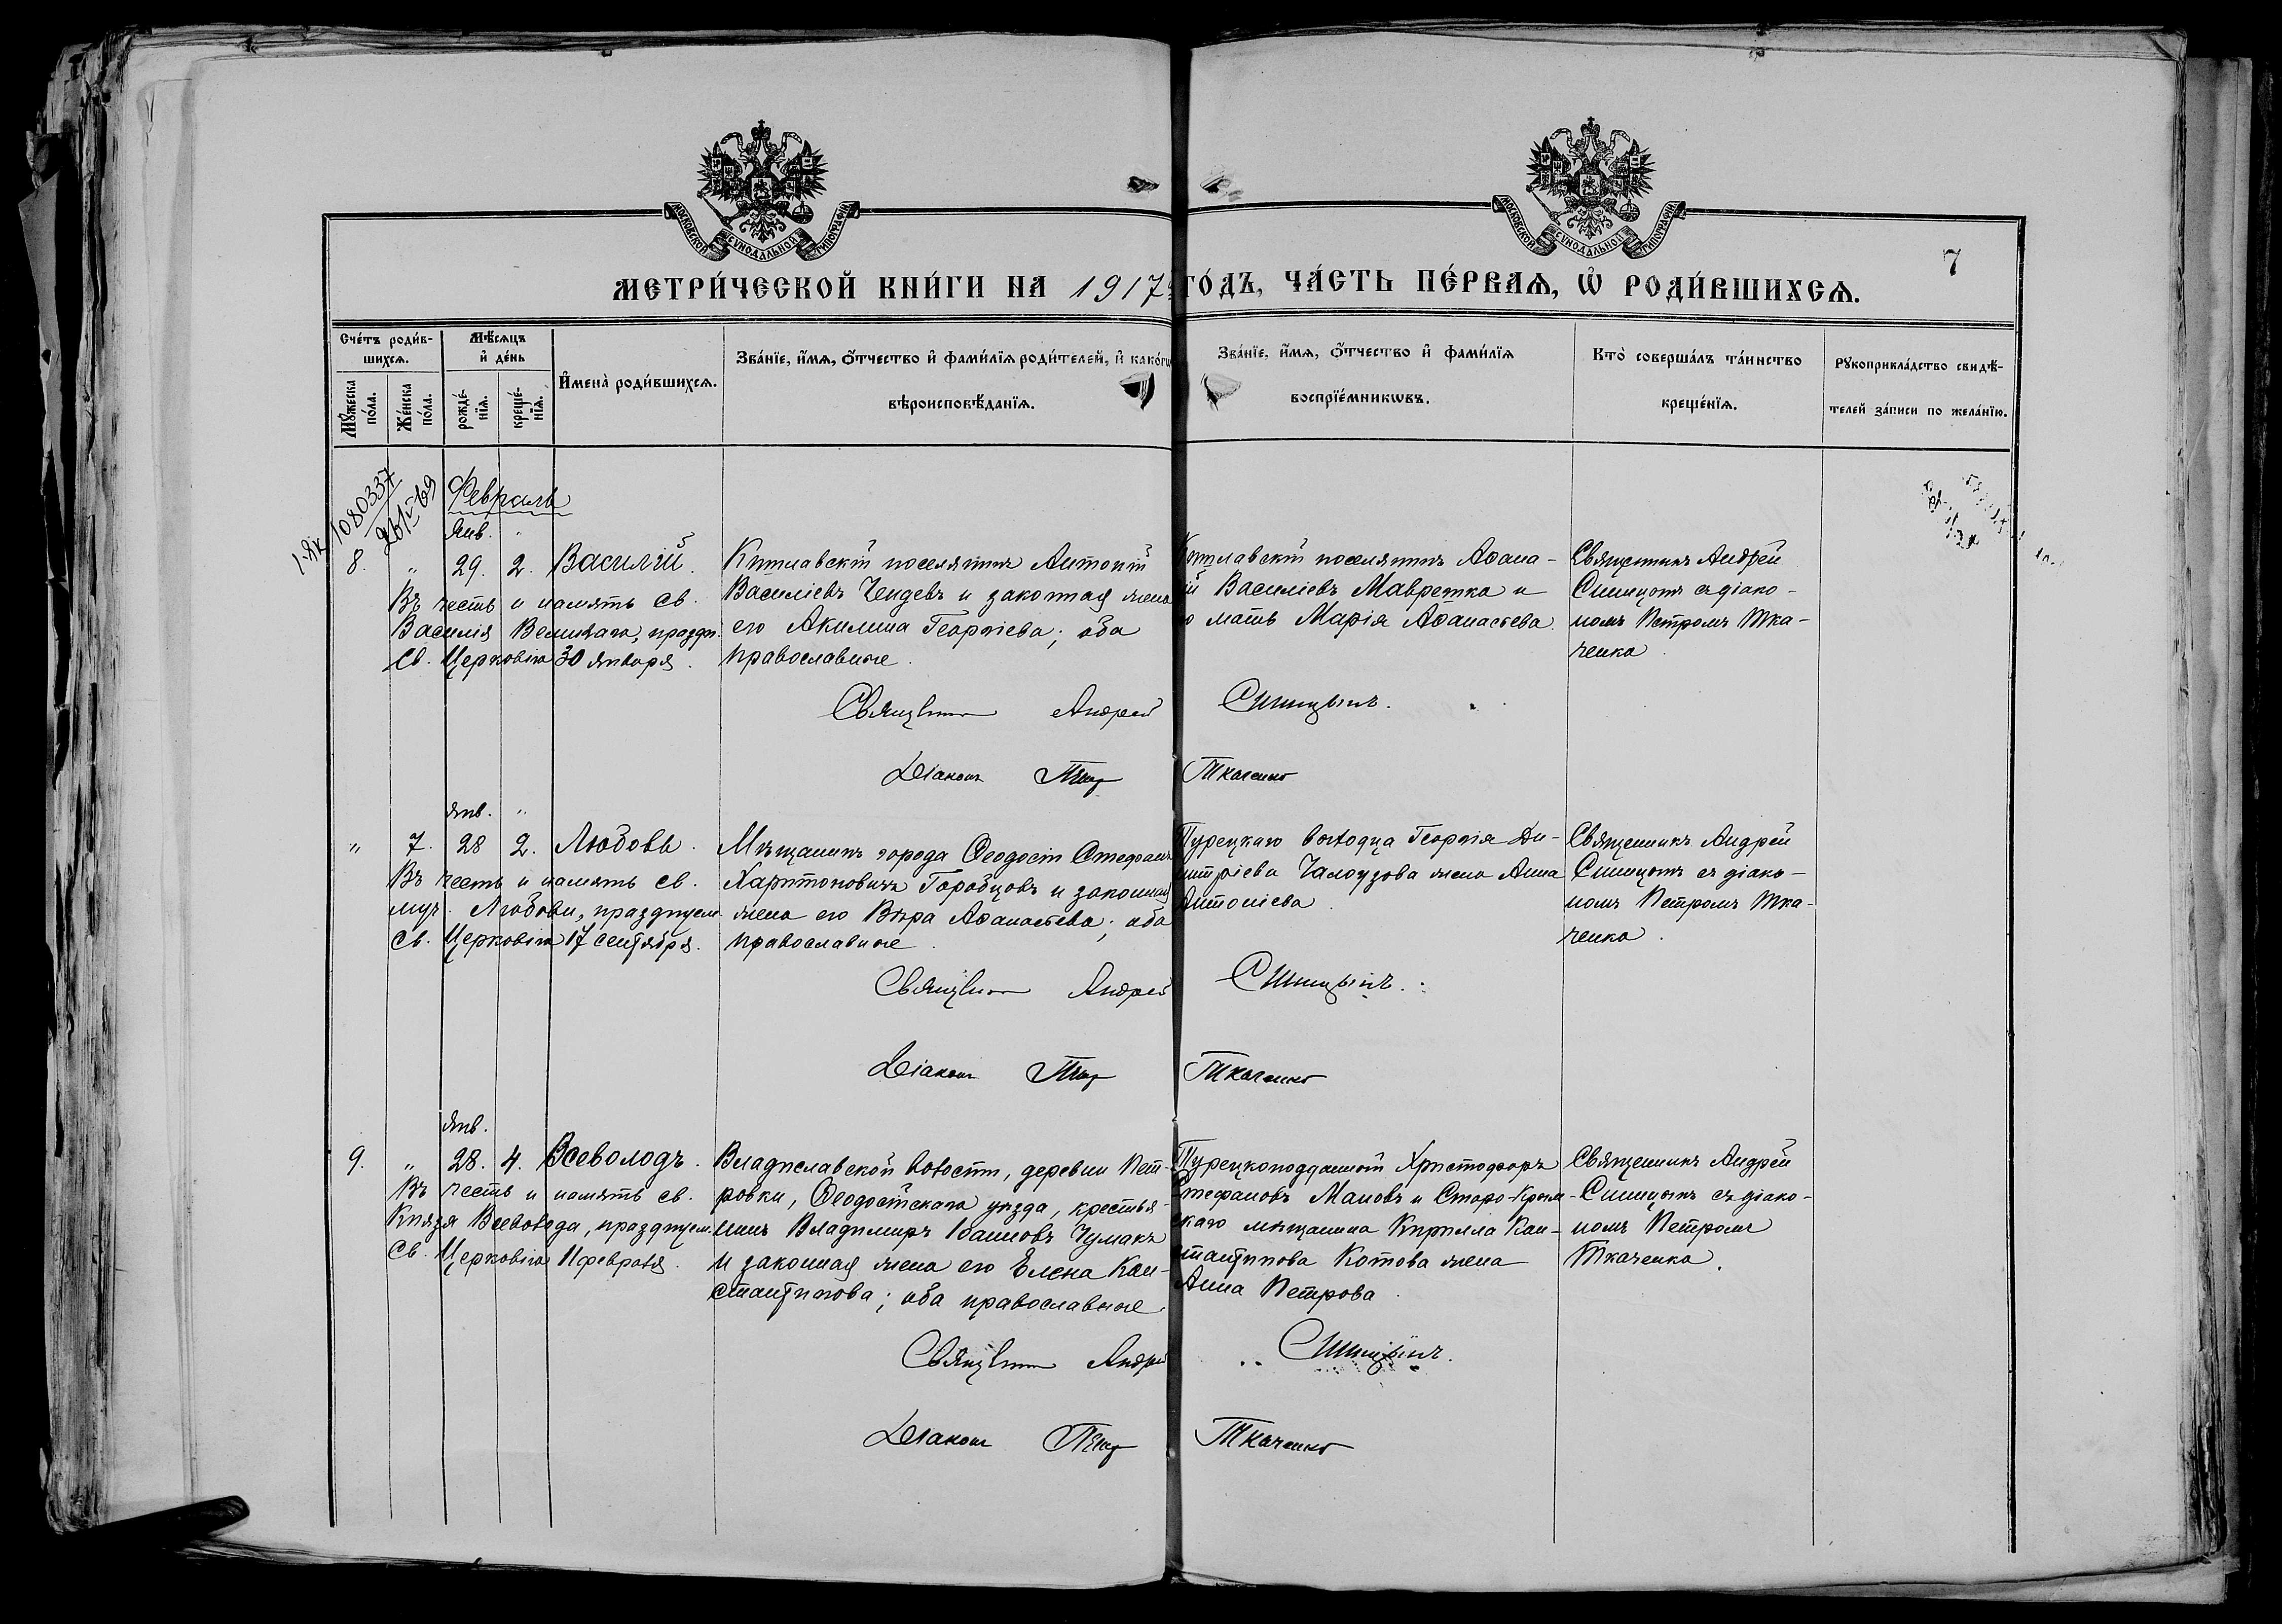 МОСКОВСКОЙ СУНОДАЛЬНОЙ ТИПОГРАФІИ
МОСКОВСКОЙ СУНОДАЛЬНОЙ ТИПОГРАФІИ
7
МЕТРИ́ЧЕСКОЙ КНИ́ГИ НА 1917 ГО́ДЪ, ЧА́СТЬ ПЕ́РВАѦ, Ѡ҆ РОДИ́ВШИХСѦ.
Сче́тъ роди́в-
шихсѧ.
Мꙋ́жеска по́ла.
Же́нска по́ла.
Мѣ́сѧцъ
и҆ де́нь
рожде́-
нїѧ.
креще́-
нїѧ.
И҆мена̀ роди́вшихсѧ.
Зва́нїе, и҆́мѧ, ѻ҆́тчество и҆ фами́лїѧ роди́телей, и҆ како́гѡ
вѣроисповѣ́данїѧ.
Зва́нїе, и҆́мѧ, ѻ҆́тчество и҆ фами́лїѧ
воспрїе́мникѡвъ.
Кто̀ соверша́лъ та́инство
креще́нїѧ.
Рꙋкоприкла́дство свидѣ́-
телей за́писи по жела́нїю.
1080337
Февраль
Янв. "
8. " 29. 2. Василій.
Въ честь и память св.
Василія Великаго, праздн.
св. Церковію 30 января.
Кутлавскій поселянинъ Антоній
Василіевъ Чендевъ и законная жена
его Акилина Георгіева; оба
православные.
Кутлавскій поселянинъ Аѳана-
ій Василіевъ Мавренка и
мать Марія Аѳанасьева.
Священникъ Андрей
Синицынъ съ діако-
номъ Петромъ Тка-
ченко.
Священникъ Андрей Синицынъ.
Діаконъ Петръ Ткаченко
Янв. "
" 7. 28 2. Любовь.
Въ честь и память св.
муч. Любови, празднуем.
св. Церковію 17 сентября.
Мѣщанинъ города Ѳеодосіи Стефанъ
Харитоновичъ Горобцовъ и законная
жена его Вѣра Аѳанасьева; оба
православные.
Турецкаго выходца Георгія Ди-
митріева Чалоузова жена Анна
Антоніева.
Священникъ Андрей
Синицынъ съ діако-
номъ Петромъ Тка-
ченко.
Священникъ Андрей Синицынъ.
Діаконъ Петръ Ткаченко
Янв.
9. " 28. 4. Всеволодъ.
Въ честь и память св.
Князя Всеволода, празднуем.
св. Церковію 11 февраля.
Владиславской волости, деревни Пет-
ровки, Ѳеодосійскаго уѣзда, крестья-
нинъ Владимиръ Іоанновъ Чумакъ
и законная жена его Елена Кон-
стантинова; оба православные.
Турецкоподданный Христофоръ
Стефановъ Мановъ и Старо-Крым-
скаго мѣщанина Кирилла Кон-
стантинова Котова жена
Анна Петрова.
Священникъ Андрей
Синицынъ съ діако-
номъ Петромъ
Ткаченко.
Священникъ Андрей Синицынъ.
Діаконъ Петръ Ткаченко